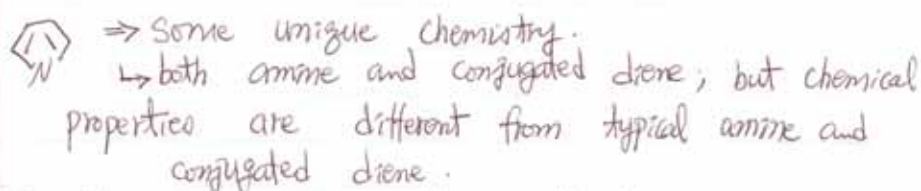 N ⇒ Some unique chemistry.
↳ both amine and conjugated diene, but chemical
properties are different from typical amine and
conjugated diene.